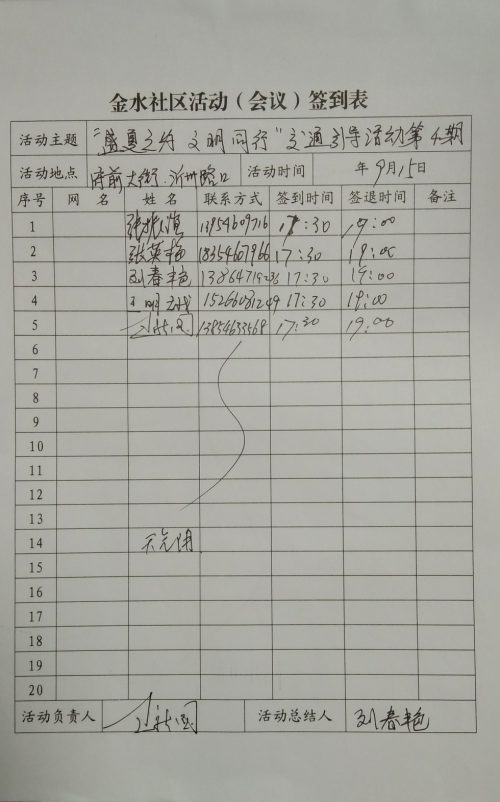 金水社区活动（会议）签到表
活动主题 “盛夏之约 文明同行”交通引导活动第4期
活动地点 府前大街.沂州路口 活动时间 年9月15日
序号 网 名 姓 名 联系方式 签到时间 签退时间 备注
1 17:30 19:00
2 张英艳 18354607966 17:30 19:00
3 刘春艳 17:30 19:00
4 17:30 19:00
5 13854653568 17:30 19:00
6
7
8
9
10
11
12
13
14
15
16
17
18
19
20
活动负责人 活动总结人 刘春艳